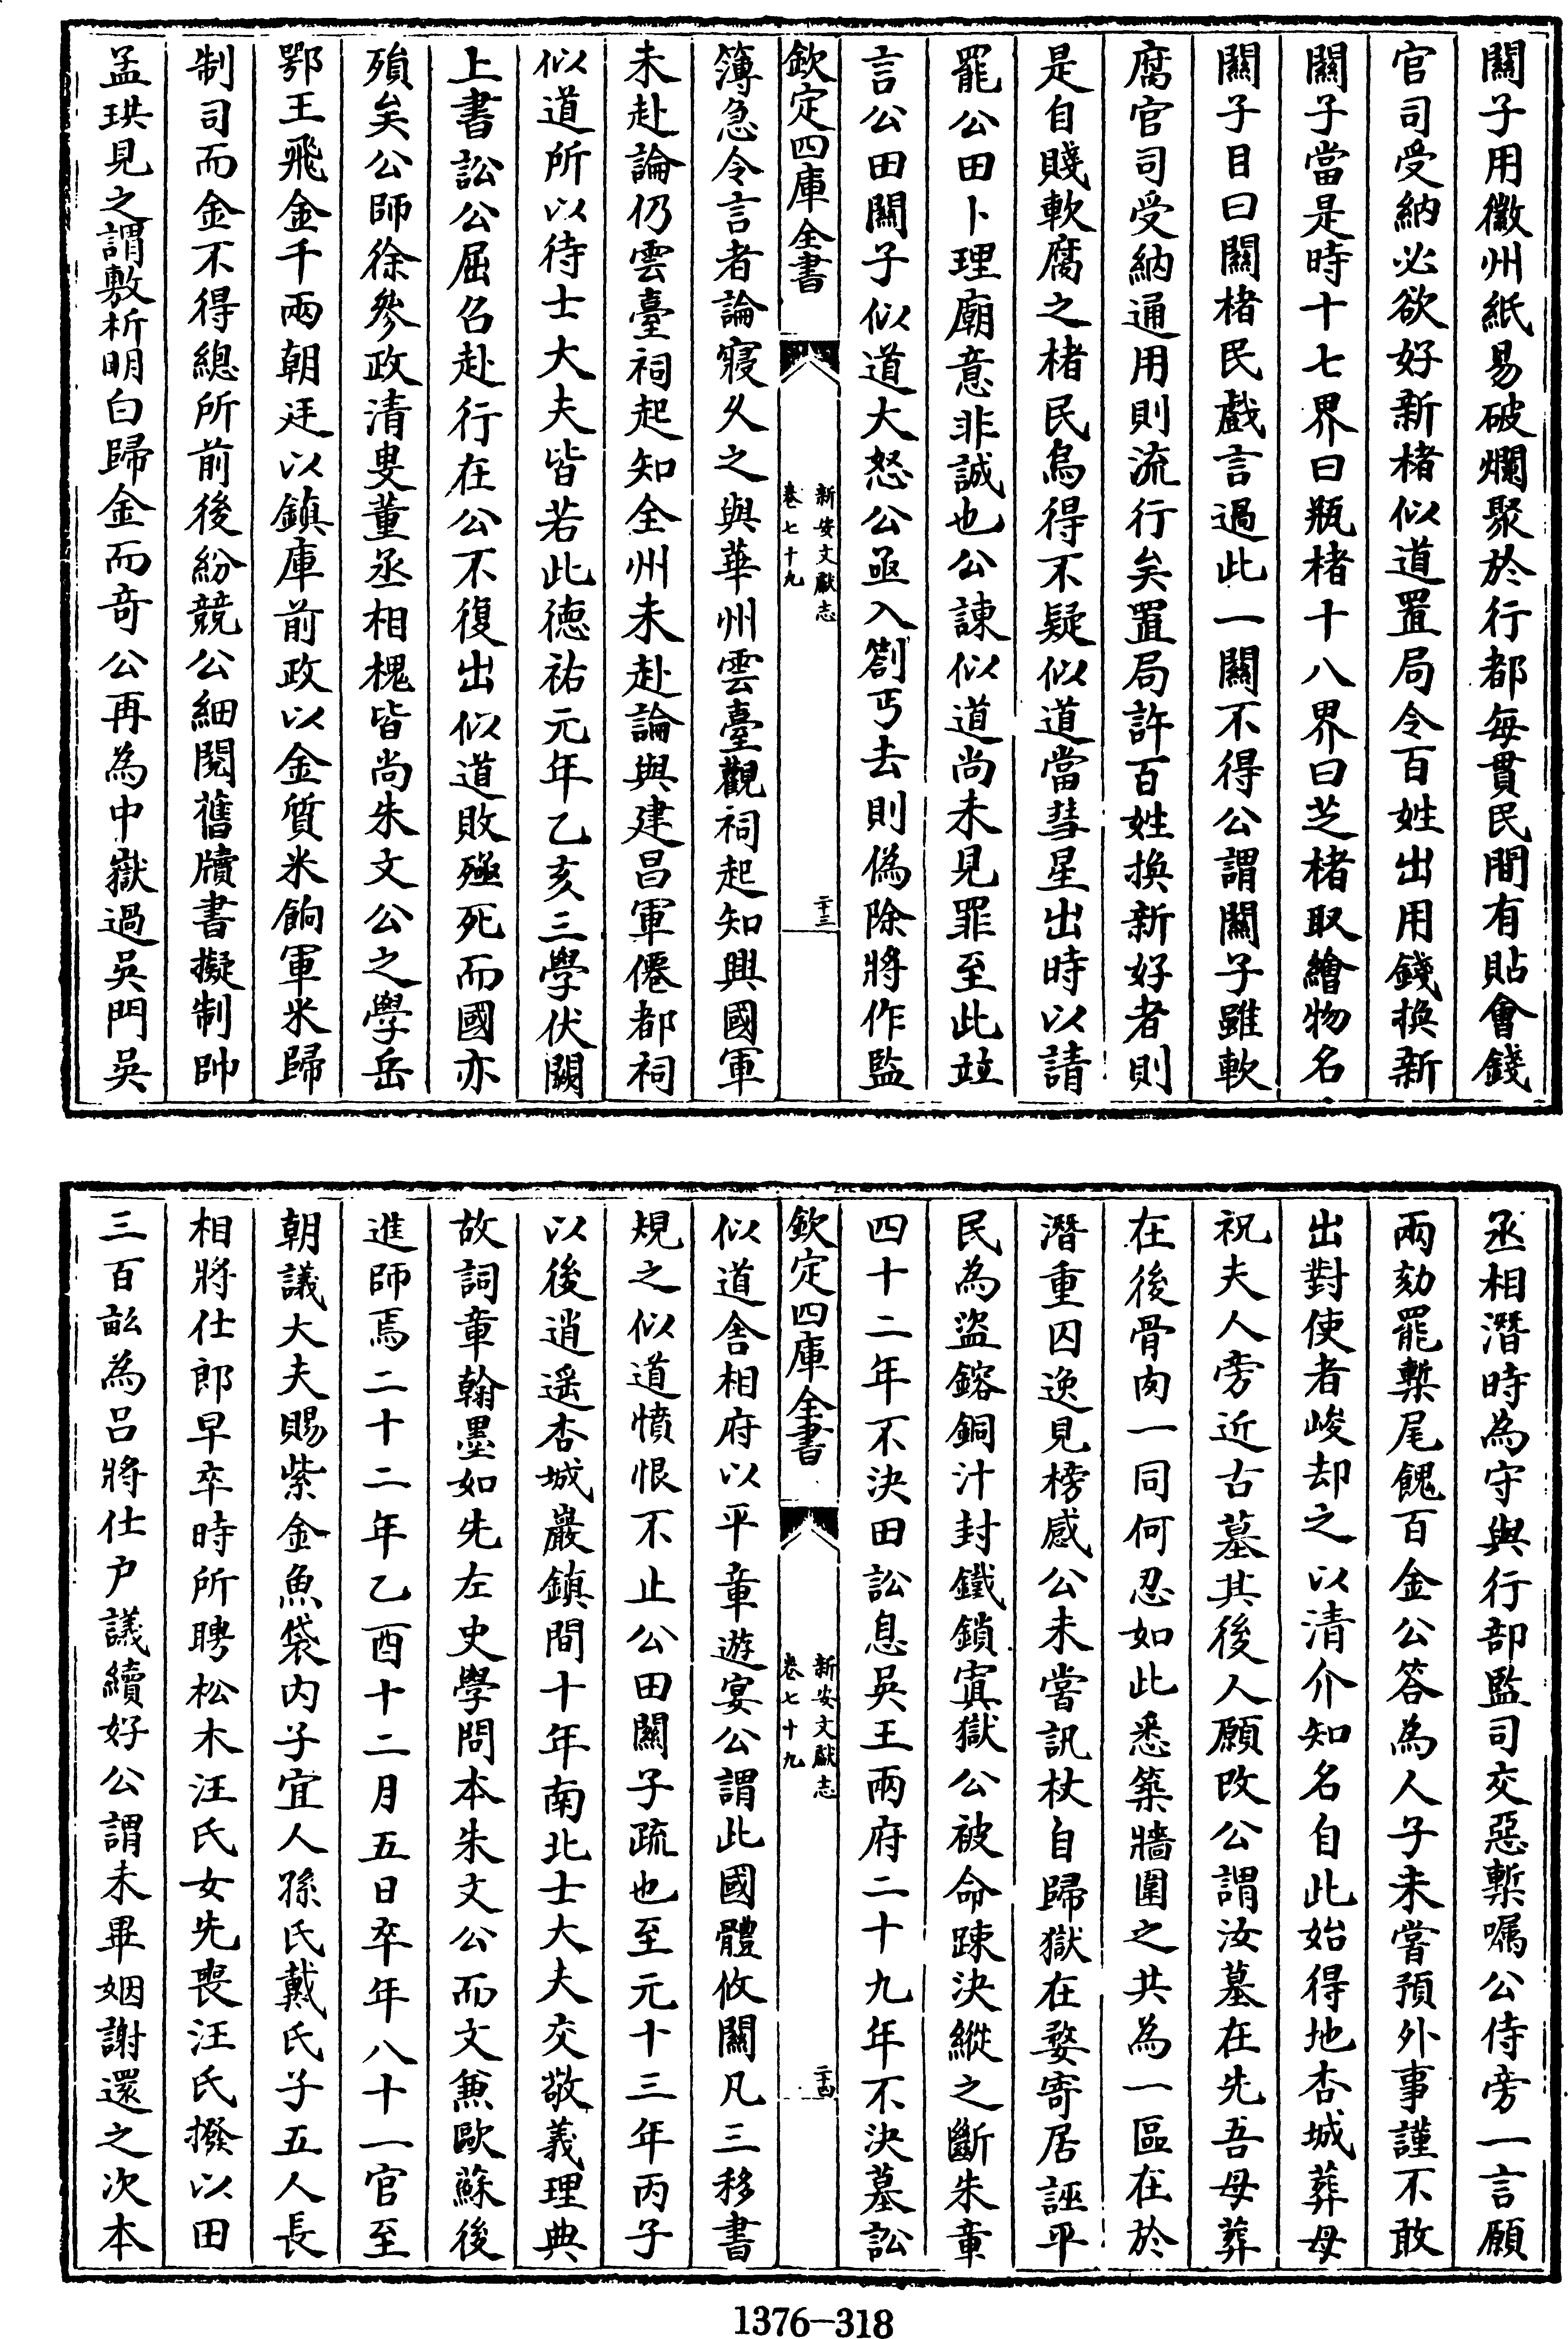 關子用徽州紙易破爛聚於行都每貫民間有貼會錢
官司受納必欲好新楮似道置局令百姓出用錢換新
關子當是時十七界曰瓶楮十八界曰芝楮取繪物名
關子目曰關楮民戲言過此一關不得公謂關子雖軟
腐官司受納通用則流行矣置局許百姓換新好者則
是自賤軟腐之楮民烏得不疑似道當彗星出時以請
罷公田卜理廟意非誠也公諫似道尚未見罪至此竝
言公田關子似道大怒公亟入劄丐去則偽除將作監
欽定四庫全書
新安文獻志
卷七十九
二十三
簿急令言者論寢久之與華州雲臺觀祠起知興國軍
未赴論仍雲臺祠起知全州未赴論與建昌軍僊都祠
似道所以待士大夫皆若此德祐元年乙亥三學伏闕
上書訟公屈召赴行在公不復出似道敗殛死而國亦
殞矣公師徐參政清叟董丞相槐皆尚朱文公之學岳
鄂王飛金千兩朝廷以鎮庫前政以金質米餉軍米歸
制司而金不得總所前後紛競公細閱舊牘書擬制帥
孟珙見之謂敷析明白歸金而奇公再為中嶽過吳門吳
丞相潛時為守與行部監司交惡槧囑公侍旁一言願
兩劾罷槧尾餽百金公答為人子未嘗預外事謹不敢
出對使者峻却之以清介知名自此始得地杏城葬母
祝夫人旁近古墓其後人願改公謂汝墓在先吾母葬
在後骨肉一同何忍如此悉築牆圍之共為一區在於
潛重囚逸見榜感公未嘗訊杖自歸獄在婺寄居誣平
民為盜鎔銅汁封鐵鎖寘獄公被命踈決縱之斷朱章
四十二年不決田訟息吳王兩府二十九年不決墓訟
欽定四庫全書
新安文獻志
卷七十九
二十四
似道舍相府以平章遊宴公謂此國體攸關凡三移書
規之似道憤恨不止公田關子疏也至元十三年丙子
以後逍遥杏城巖鎮間十年南北士大夫交敬義理典
故詞章翰墨如先左史學問本朱文公而文兼歐蘇後
進師焉二十二年乙酉十二月五日卒年八十一官至
朝議大夫賜紫金魚袋内子宜人孫氏戴氏子五人長
相將仕郎早卒時所聘松木汪氏女先喪汪氏撥以田
三百畝為呂將仕户議續好公謂未畢姻謝還之次本
1376-318